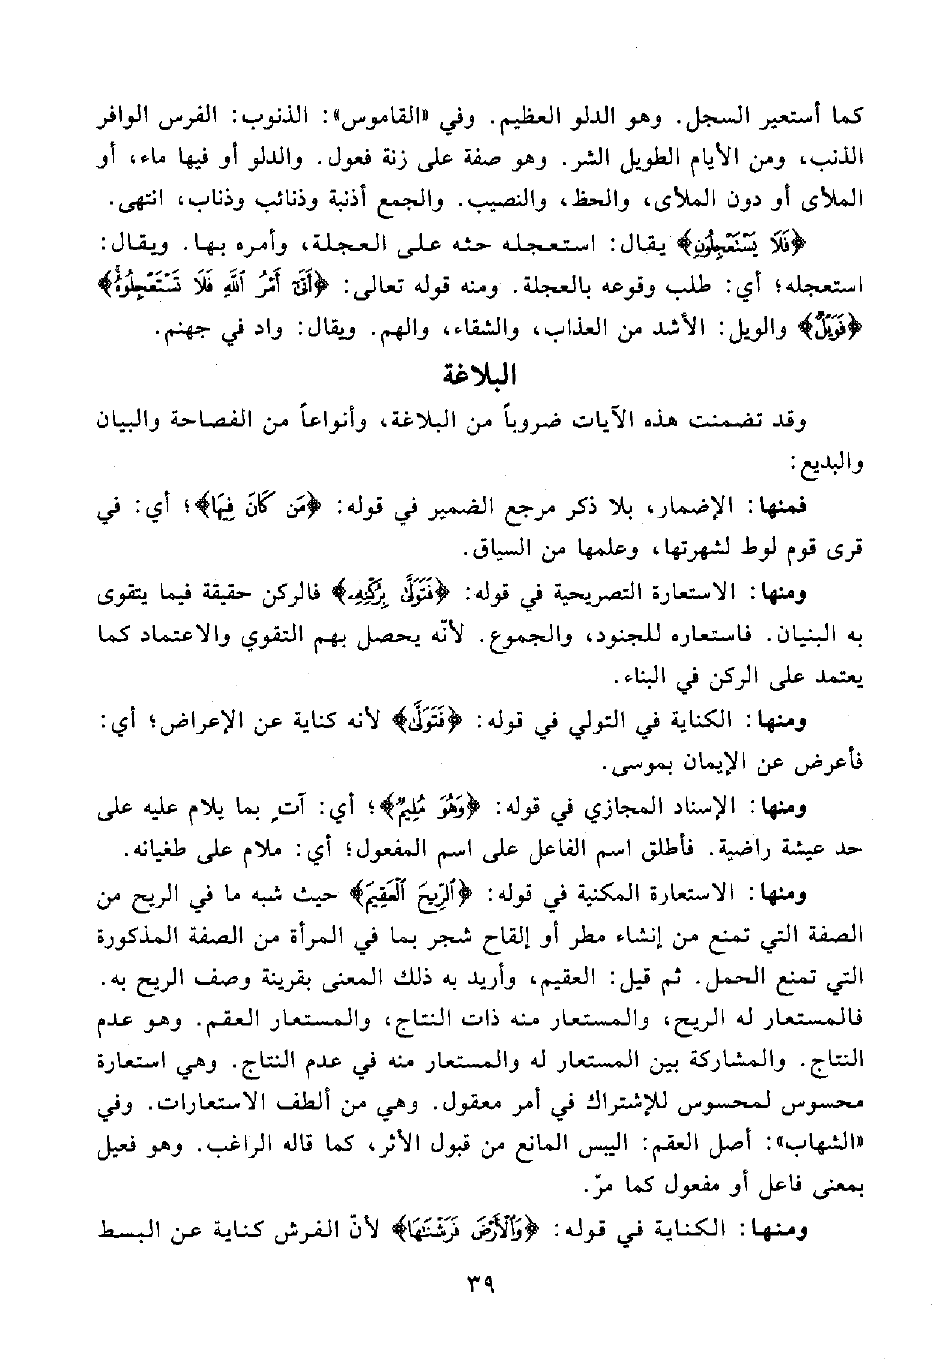 كما أستعير السجل. وهو الدلو العظيم. وفي «القاموس»: الذنوب: الفرس الوافر
الذنب، ومن الأيام الطويل الشر. وهو صفة على زنة فعول. والدلو أو فيها ماء، أو
الملأى أو دون الملأى، والحظ، والنصيب. والجمع أذنبة وذنائب وذناب، انتهى.
﴿فَلَا يَسْتَعْجِلُونِ﴾ يقال: استعجله حثه على العجلة، وأمره بها. ويقال:
استعجله؛ أي: طلب وقوعه بالعجلة. ومنه قوله تعالى: ﴿أَتَىٰٓ أَمْرُ ٱللَّهِ فَلَا تَسْتَعْجِلُوهُ﴾
﴿فَوَيْلٌ﴾ والويل: الأشد من العذاب، والشقاء، والهم. ويقال: واد في جهنم.
البلاغة
وقد تضمنت هذه الآيات ضروباً من البلاغة، وأنواعاً من الفصاحة والبيان
والبديع:
فمنها: الإضمار، بلا ذكر مرجع الضمير في قوله: ﴿مَن كَانَ فِيهَا﴾؛ أي: في
قرى قوم لوط لشهرتها، وعلمها من السياق.
ومنها: الاستعارة التصريحية في قوله: ﴿فَتَوَلَّىٰ بِرُكْنِهِۦ﴾ فالركن حقيقة فيما يتقوى
به البنيان. فاستعاره للجنود، والجموع. لأنّه يحصل بهم التقوي والاعتماد كما
يعتمد على الركن في البناء.
ومنها: الكناية في التولي في قوله: ﴿فَتَوَلَّىٰ﴾ لأنه كناية عن الإعراض؛ أي:
فأعرض عن الإيمان بموسى.
ومنها: الإسناد المجازي في قوله: ﴿وَهُوَ مُلِيمٌ﴾؛ أي: آتٍ بما يلام عليه على
حد عيشة راضية. فأطلق اسم الفاعل على اسم المفعول؛ أي: ملام على طغيانه.
ومنها: الاستعارة المكنية في قوله: ﴿ٱلرِّيحَ ٱلْعَقِيمَ﴾ حيث شبه ما في الريح من
الصفة التي تمنع من إنشاء مطر أو إلقاح شجر بما في المرأة من الصفة المذكورة
التي تمنع الحمل. ثم قيل: العقيم، وأريد به ذلك المعنى بقرينة وصف الريح به.
فالمستعار له الريح، والمستعار منه ذات النتاج، والمستعار العقم. وهو عدم
النتاج. والمشاركة بين المستعار له والمستعار منه في عدم النتاج. وهي استعارة
محسوس لمحسوس للإشتراك في أمر معقول. وهي من ألطف الاستعارات. وفي
«الشهاب»: أصل العقم: اليبس المانع من قبول الأثر، كما قاله الراغب. وهو فعيل
بمعنى فاعل أو مفعول كما مرّ.
ومنها: الكناية في قوله: ﴿وَٱلْأَرْضَ فَرَشْنَٰهَا﴾ لأنّ الفرش كناية عن البسط
٣٩